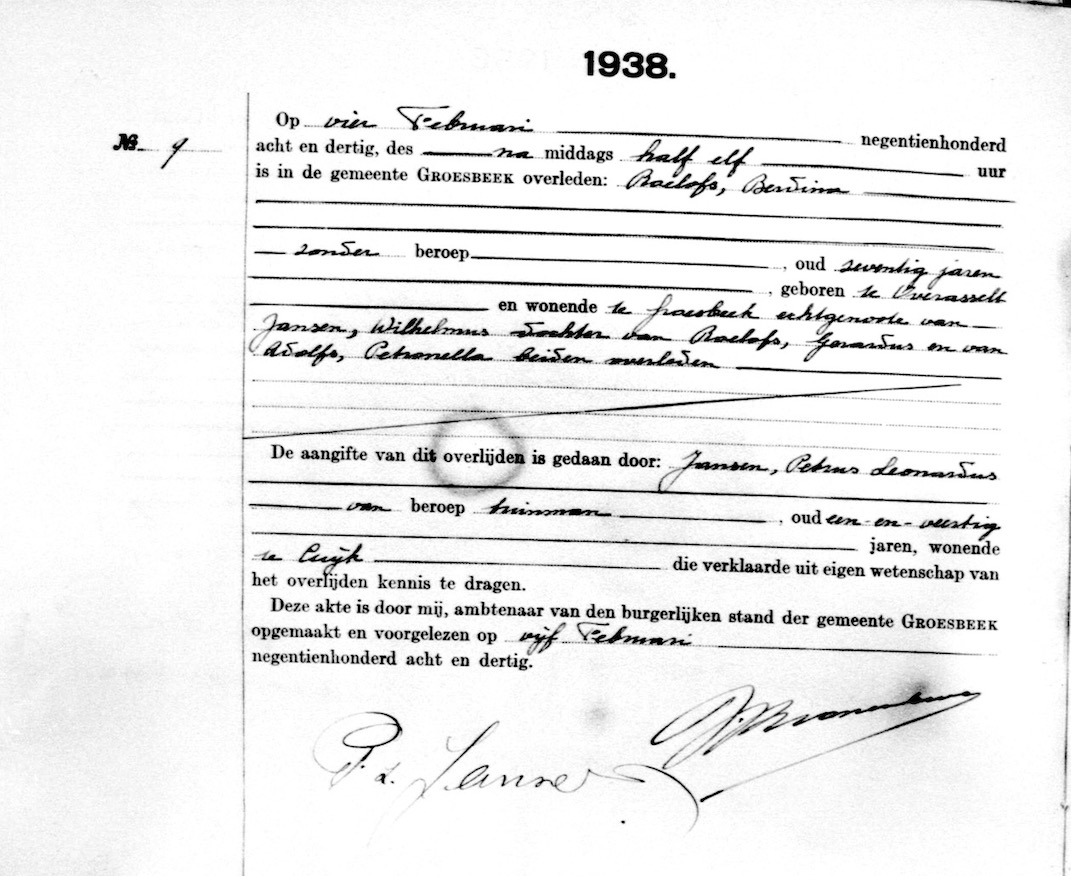 1938.
No. 9
Op vier Februari negentienhonderd
acht en dertig, des na middags half elf uur
is in de gemeente GROESBEEK overleden: Roelofs, Berdina
zonder beroep , oud zeventig jaren
, geboren te Overasselt
en wonende te Groesbeek echtgenoote van
Jansen, Wilhelmus dochter van Roelofs, Gerardus en van
Adolfs, Petronella beiden overleden
De aangifte van dit overlijden is gedaan door: Jansen, Petrus Leonardus
van beroep tuinman , oud een-en-veertig
jaren, wonende
te Cuijk die verklaarde uit eigen wetenschap van
het overlijden kennis te dragen.
Deze akte is door mij, ambtenaar van den burgerlijken stand der gemeente GROESBEEK
opgemaakt en voorgelezen op vijf Februari
negentienhonderd acht en dertig.
P. L. Jansen